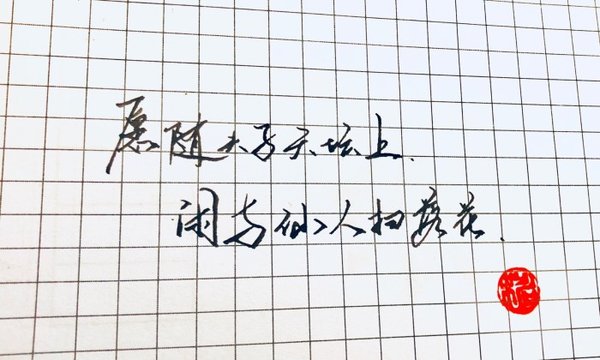 愿随夫子天坛上.
闲与仙人扫落花.